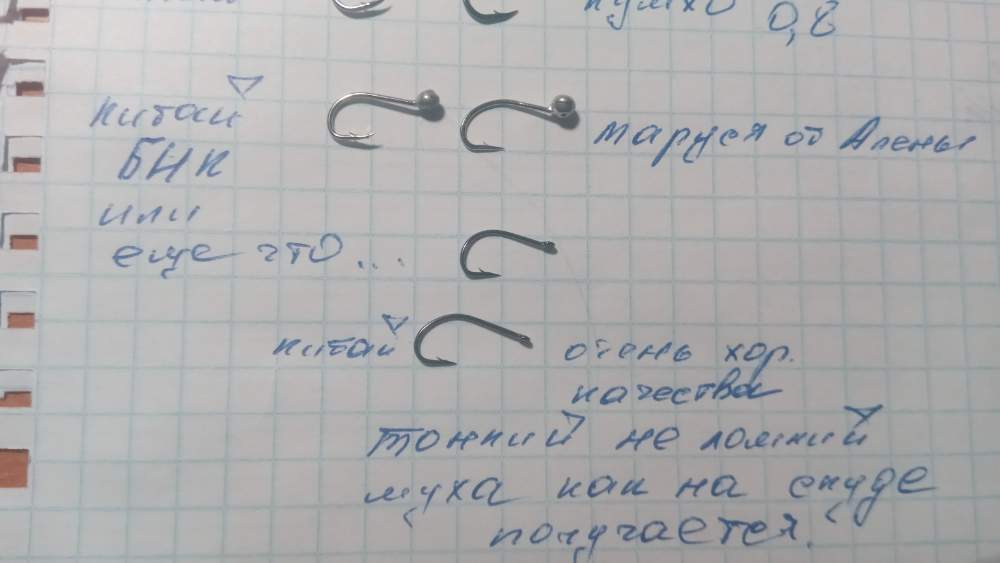 кумхо 0,8
китай
БНК
или
еще что...
маруся от Алены
китай
очень хор.
качества
тонкий не ломкий
муха как на скуде
получается.